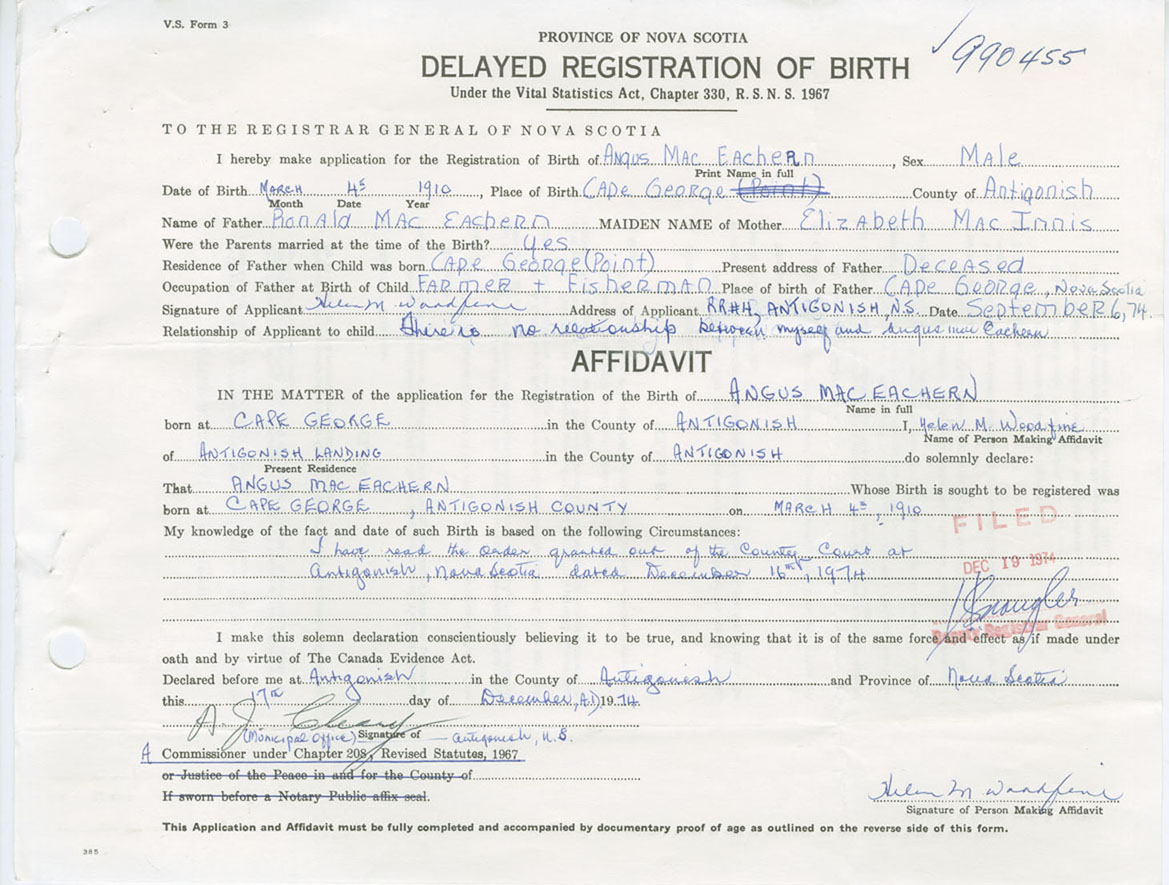 V.S. Form 3
PROVINCE OF NOVA SCOTIA
990455
DELAYED REGISTRATION OF BIRTH
Under the Vital Statistics Act, Chapter 330, R.S.N.S. 1967
TO THE REGISTRAR GENERAL OF NOVA SCOTIA
I hereby make application for the Registration of Birth of Angus Mac Eachern, Sex Male
Print Name in full
Date of Birth March 4th 1910, Place of Birth Cape George (Point) County of Antigonish
Month Date Year
Name of Father Ronald Mac Eachern MAIDEN NAME of Mother Elizabeth Mac Innis
Were the Parents married at the time of the Birth? Yes
Residence of Father when Child was born Cape George (Point) Present address of Father Deceased
Occupation of Father at Birth of Child Farmer + Fisherman Place of birth of Father Cape George, Nova Scotia
Signature of Applicant Helen M Woodfine Address of Applicant RR#4, ANTIGONISH, N.S. Date September 6, 74.
Relationship of Applicant to child There is no relationship between myself and Angus Mac Eachern
AFFIDAVIT
IN THE MATTER of the application for the Registration of the Birth of ANGUS MAC EACHERN
Name in full
born at CAPE GEORGE in the County of ANTIGONISH I, Helen M. Woodfine
Name of Person Making Affidavit
of ANTIGONISH LANDING in the County of ANTIGONISH do solemnly declare:
Present Residence
That ANGUS MAC EACHERN Whose Birth is sought to be registered was
born at CAPE GEORGE, ANTIGONISH COUNTY on MARCH 4th, 1910
My knowledge of the fact and date of such Birth is based on the following Circumstances:
FILED
I have read the Order granted out of the County Court at
Antigonish, Nova Scotia dated December 16th, 1974
DEC 19 1974
Deputy Registrar General
I make this solemn declaration conscientiously believing it to be true, and knowing that it is of the same force and effect as if made under
oath and by virtue of The Canada Evidence Act.
Declared before me at Antigonish in the County of Antigonish and Province of Nova Scotia
this 17th day of December, A.D. 1974.
A. J. Cleary
(Municipal Office) Signature of Antigonish, N.S.
A Commissioner under Chapter 208, Revised Statutes, 1967
or Justice of the Peace in and for the County of
If sworn before a Notary Public affix seal.
Helen M Woodfine
Signature of Person Making Affidavit
This Application and Affidavit must be fully completed and accompanied by documentary proof of age as outlined on the reverse side of this form.
385